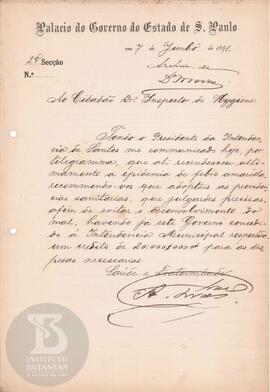 Palacio do Governo do Estado de S. Paulo
em 7 de Junho de 1891.
2ª Secção
N.º
Archive-se
Ao Cidadão Dr. Inspector de Hygiene
Tendo o Presidente da Intenden-
cia de Santos me communicado hoje, por
telegramma, que ali recrudesceu ulti-
mamente a epidemia de febre amarella,
recommendo-vos que adopteis as providen-
cias sanitarias, que julgardes precisas,
afim de evitar o desenvolvimento do
mal, havendo já este Governo concedi-
do á Intendencia Municipal respectiva
um credito de 20:000$000 para as des-
pesas necessarias.
Saúde e Fraternidade
INSTITUTO
BUTANTAN